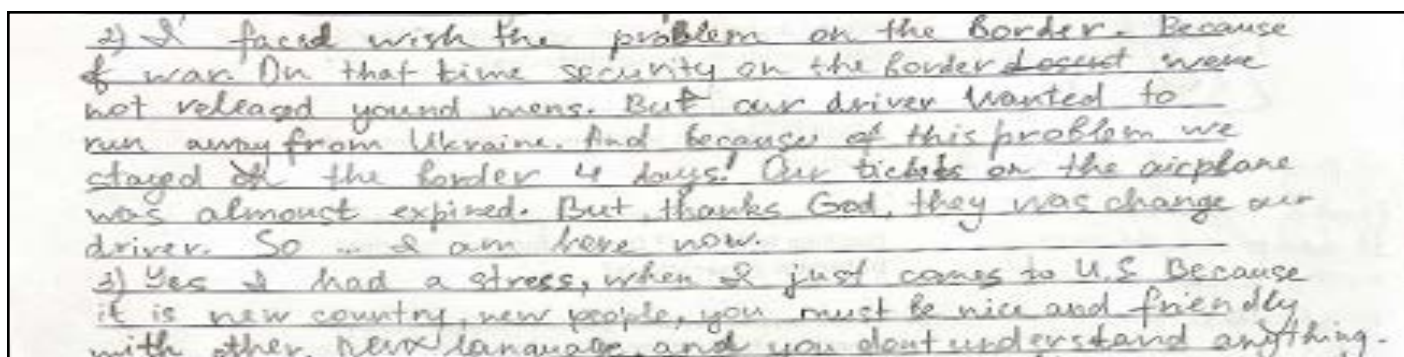 2) I faced wish the problem on the Border. Because
of war. On that time security on the border were
not released yound mens. But our driver wanted to
run away from Ukraine. And because of this problem we
stayed the border 4 days! Our tickets on the airplane
was almoust expired. But, thanks God, they was change our
driver. So ... I am here now.
3) Yes I had a stress, when I just comes to U.S Because
it is new country, new people, you must be nice and friendly
with other, new language, and you dont understand anything.